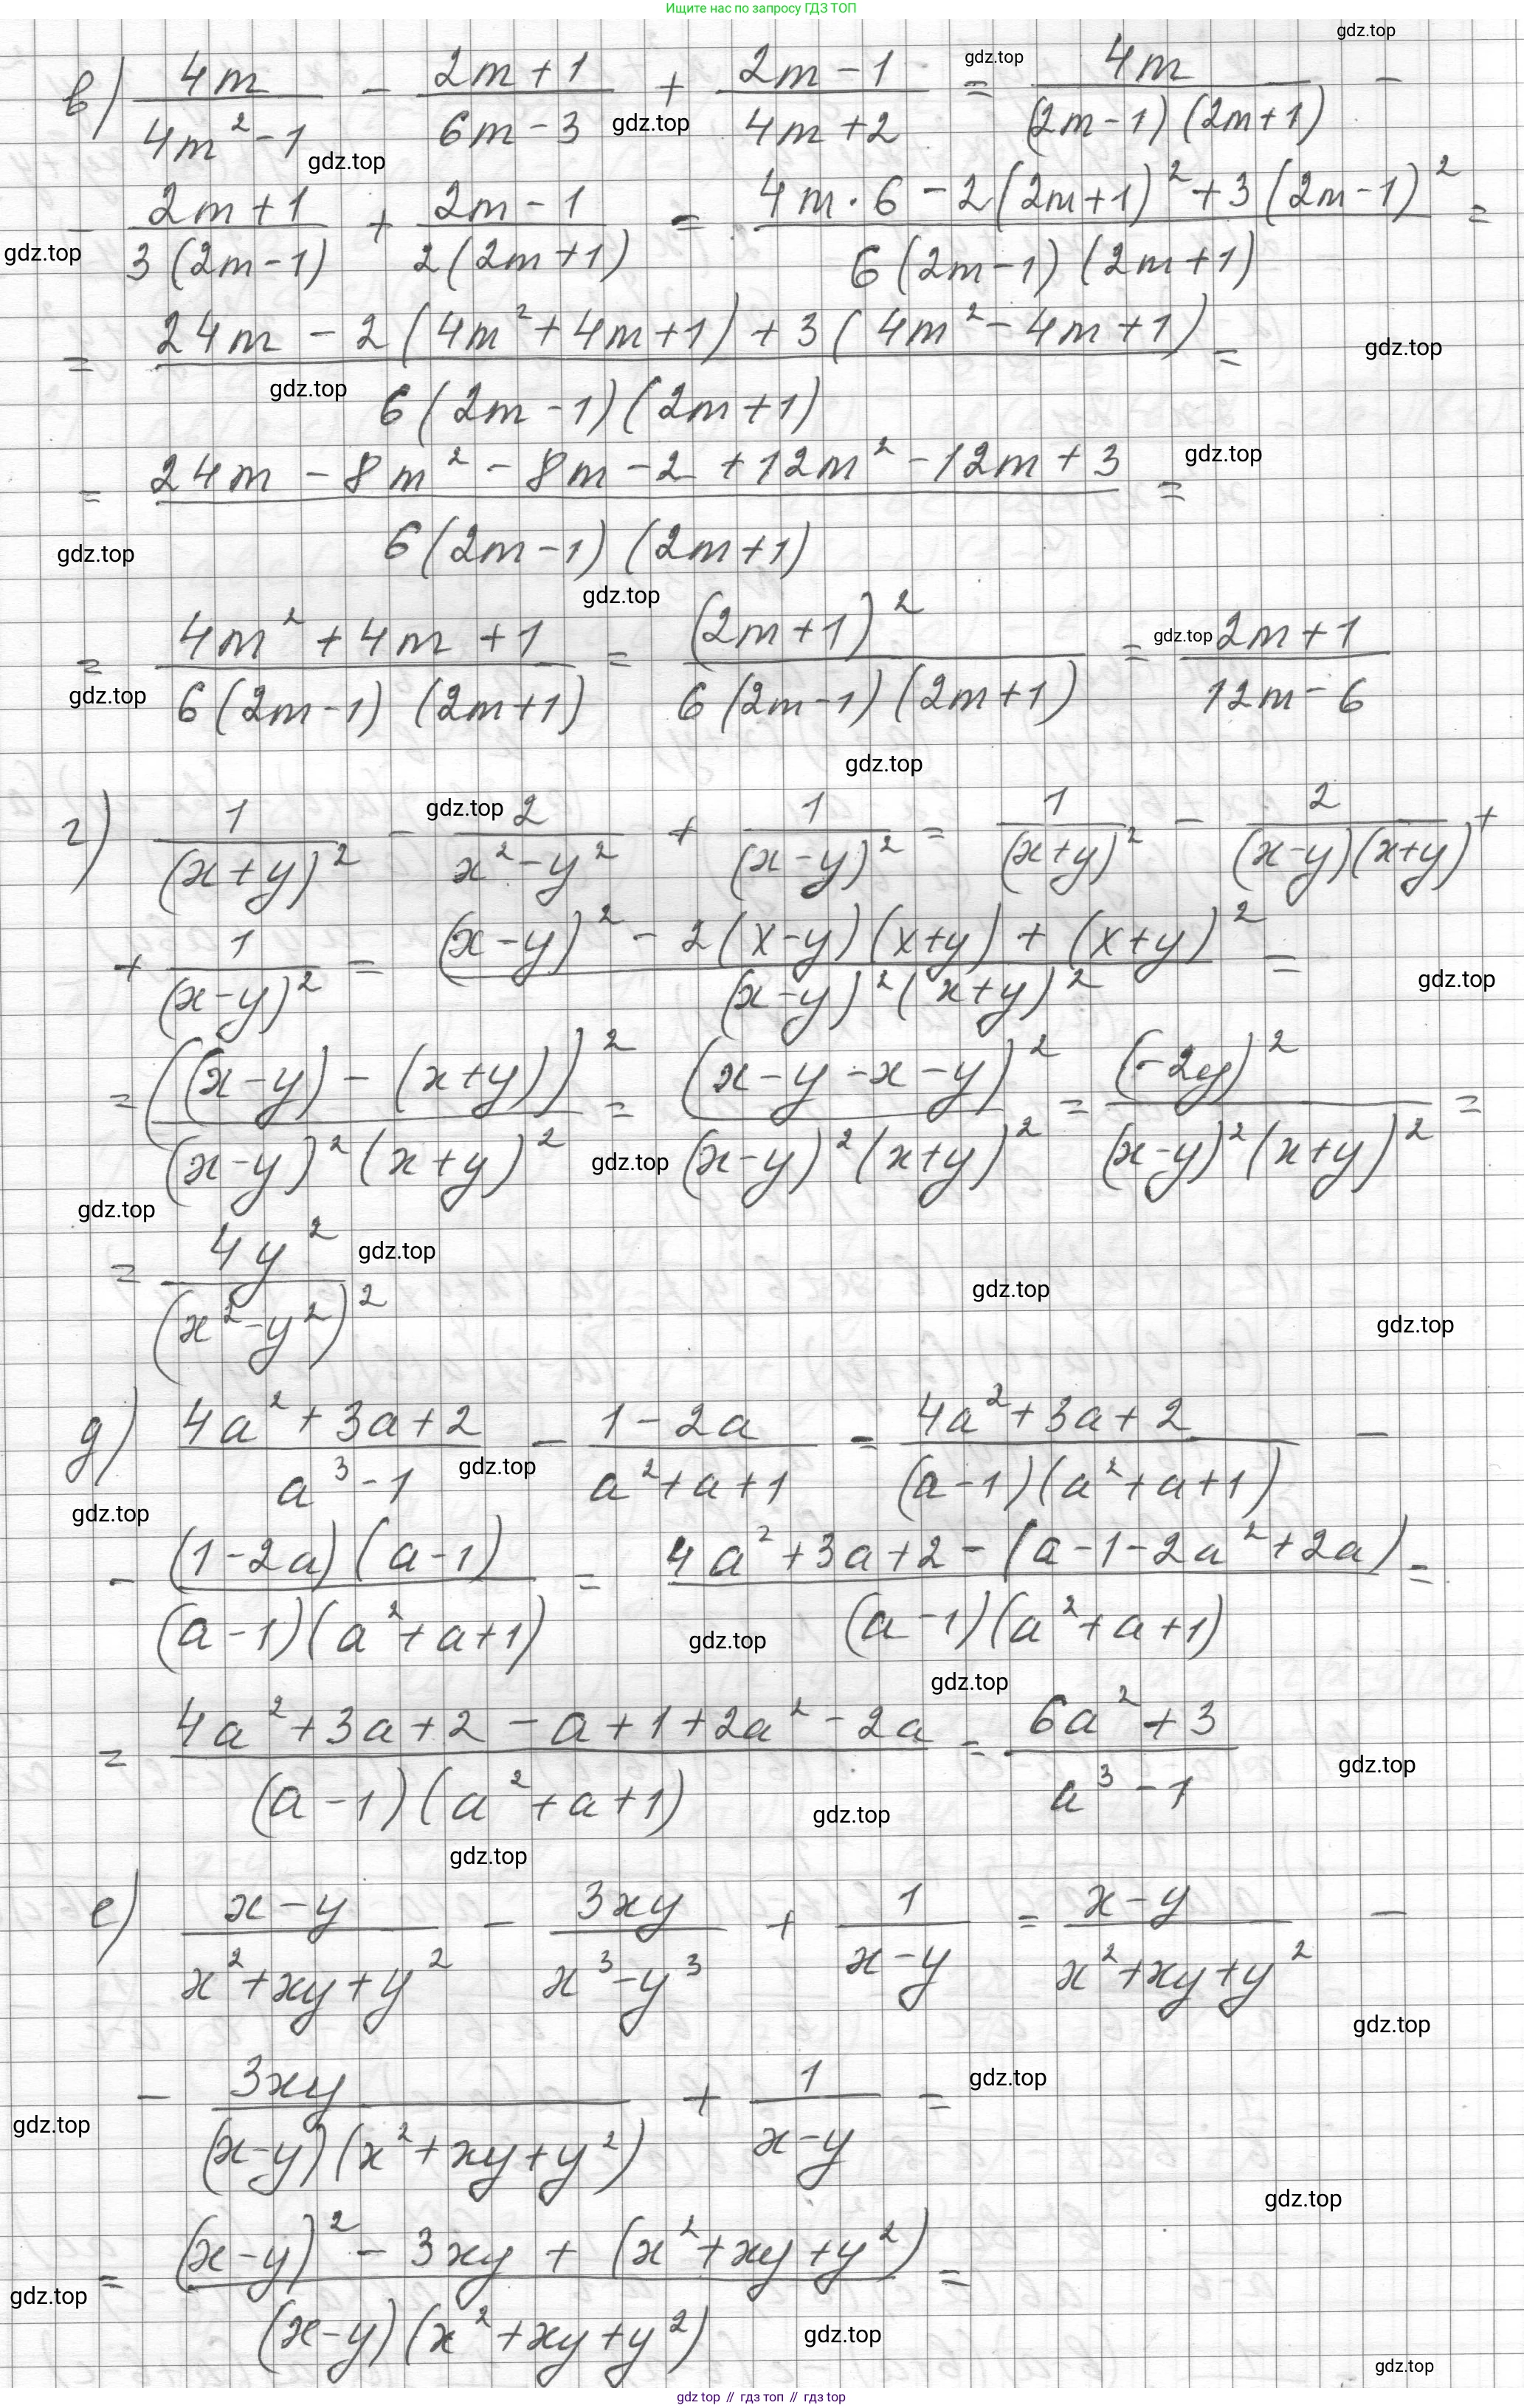 Ищите нас по запросу ГДЗ ТОП
gdz.top
в) 4m/(4m²-1) - (2m+1)/(6m-3) + (2m-1)/(4m+2) = 4m/((2m-1)(2m+1)) -
gdz.top gdz.top gdz.top
- (2m+1)/(3(2m-1)) + (2m-1)/(2(2m+1)) = (4m·6-2(2m+1)²+3(2m-1)²)/(6(2m-1)(2m+1)) =
gdz.top
= (24m-2(4m²+4m+1)+3(4m²-4m+1))/(6(2m-1)(2m+1)) =
gdz.top gdz.top
= (24m-8m²-8m-2+12m²-12m+3)/(6(2m-1)(2m+1)) =
gdz.top
gdz.top
gdz.top
= (4m²+4m+1)/(6(2m-1)(2m+1)) = (2m+1)²/(6(2m-1)(2m+1)) = (2m+1)/(12m-6)
gdz.top gdz.top
gdz.top
г) 1/(x+y)² - 2/(x²-y²) + 1/(x-y)² = 1/(x+y)² - 2/((x-y)(x+y)) +
gdz.top
+ 1/(x-y)² = ((x-y)²-2(x-y)(x+y)+(x+y)²)/((x-y)²(x+y)²) =
gdz.top
= ((x-y)-(x+y))²/((x-y)²(x+y)²) = (x-y-x-y)²/((x-y)²(x+y)²) = (-2y)²/((x-y)²(x+y)²) =
gdz.top
gdz.top
= 4y²/(x²-y²)²
gdz.top gdz.top
gdz.top
д) (4a²+3a+2)/(a³-1) - (1-2a)/(a²+a+1) = (4a²+3a+2)/((a-1)(a²+a+1)) -
gdz.top
gdz.top
- ((1-2a)(a-1))/((a-1)(a²+a+1)) = (4a²+3a+2-(a-1-2a²+2a))/((a-1)(a²+a+1)) =
gdz.top
gdz.top
= (4a²+3a+2-a+1+2a²-2a)/((a-1)(a²+a+1)) = (6a²+3)/(a³-1)
gdz.top
gdz.top
gdz.top
е) (x-y)/(x²+xy+y²) - 3xy/(x³-y³) + 1/(x-y) = (x-y)/(x²+xy+y²) -
gdz.top
- 3xy/((x-y)(x²+xy+y²)) + 1/(x-y) =
gdz.top
gdz.top
gdz.top
= ((x-y)²-3xy+(x²+xy+y²))/((x-y)(x²+xy+y²)) =
gdz.top
gdz.top
gdz.top
gdz top // гдз топ // gdz.top